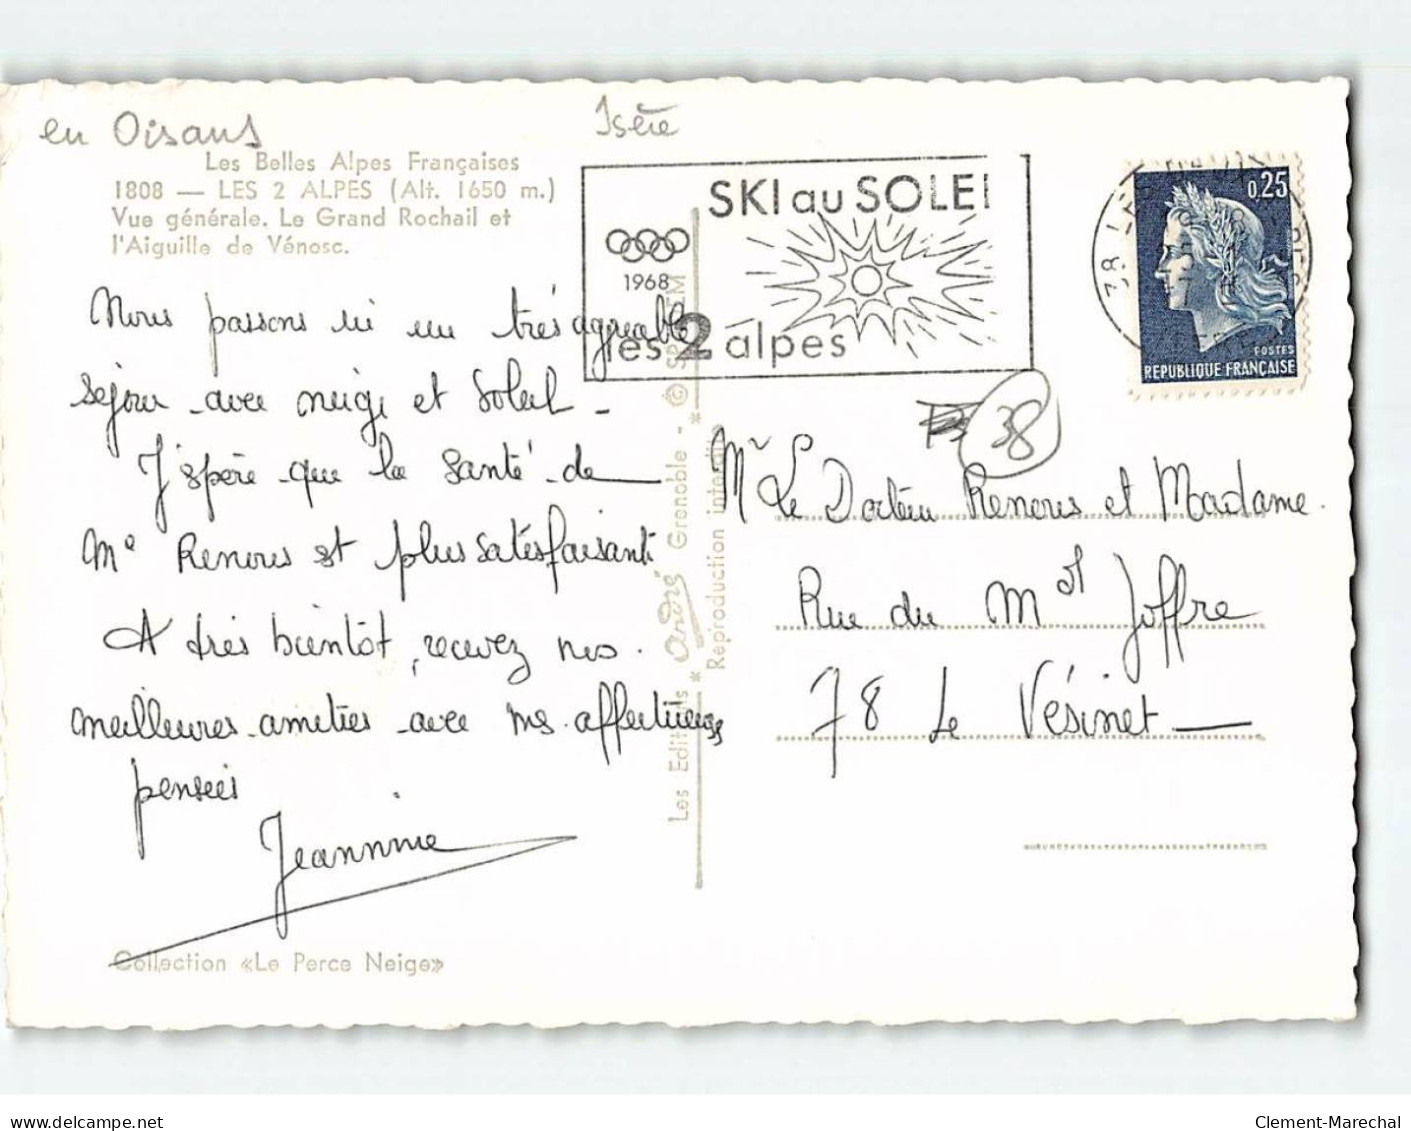 en Oisans
Isère
Les Belles Alpes Françaises
1808 — LES 2 ALPES (Alt. 1650 m.)
Vue générale. Le Grand Rochail et
l'Aiguille de Vénosc.
SKI au SOLEI
1968
les 2 alpes
0,25
POSTES
REPUBLIQUE FRANÇAISE
38
38
Nous passons ici un très agréable
séjour avec neige et soleil -
J'espère que la santé de
Me Renous est plus satisfaisante
A très bientôt, recevez nos
meilleures amitiés avec mes affectueuses
pensées
Jeannine
Collection «Le Perce Neige»
Les Editions * André Grenoble - * ©
Reproduction interdite
Mr Le Docteur Renous et Madame.
Rue du Mal Joffre
78 Le Vésinet —
delcampe.net
Clement-Marechal